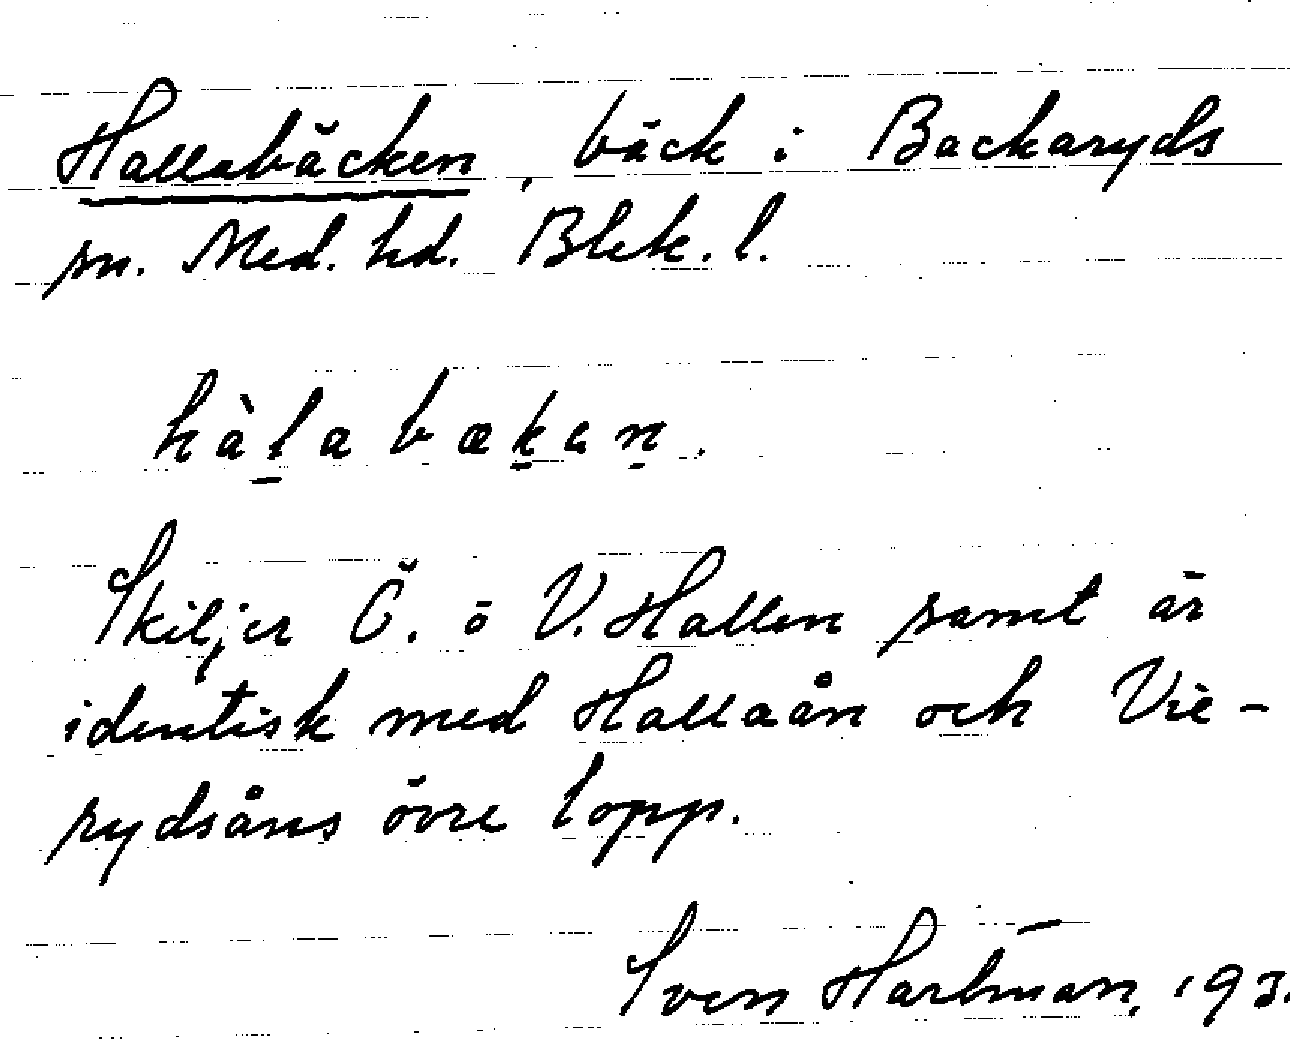 Hallabäcken, bäck i Backaryds
sn. Med. hd. Blek. l.
hàlabækən.
Skiljer Ö. o V. Hallen samt är
identisk med Hallaån och Vie-
rydsåns övre lopp.
Sven Hartman, 193